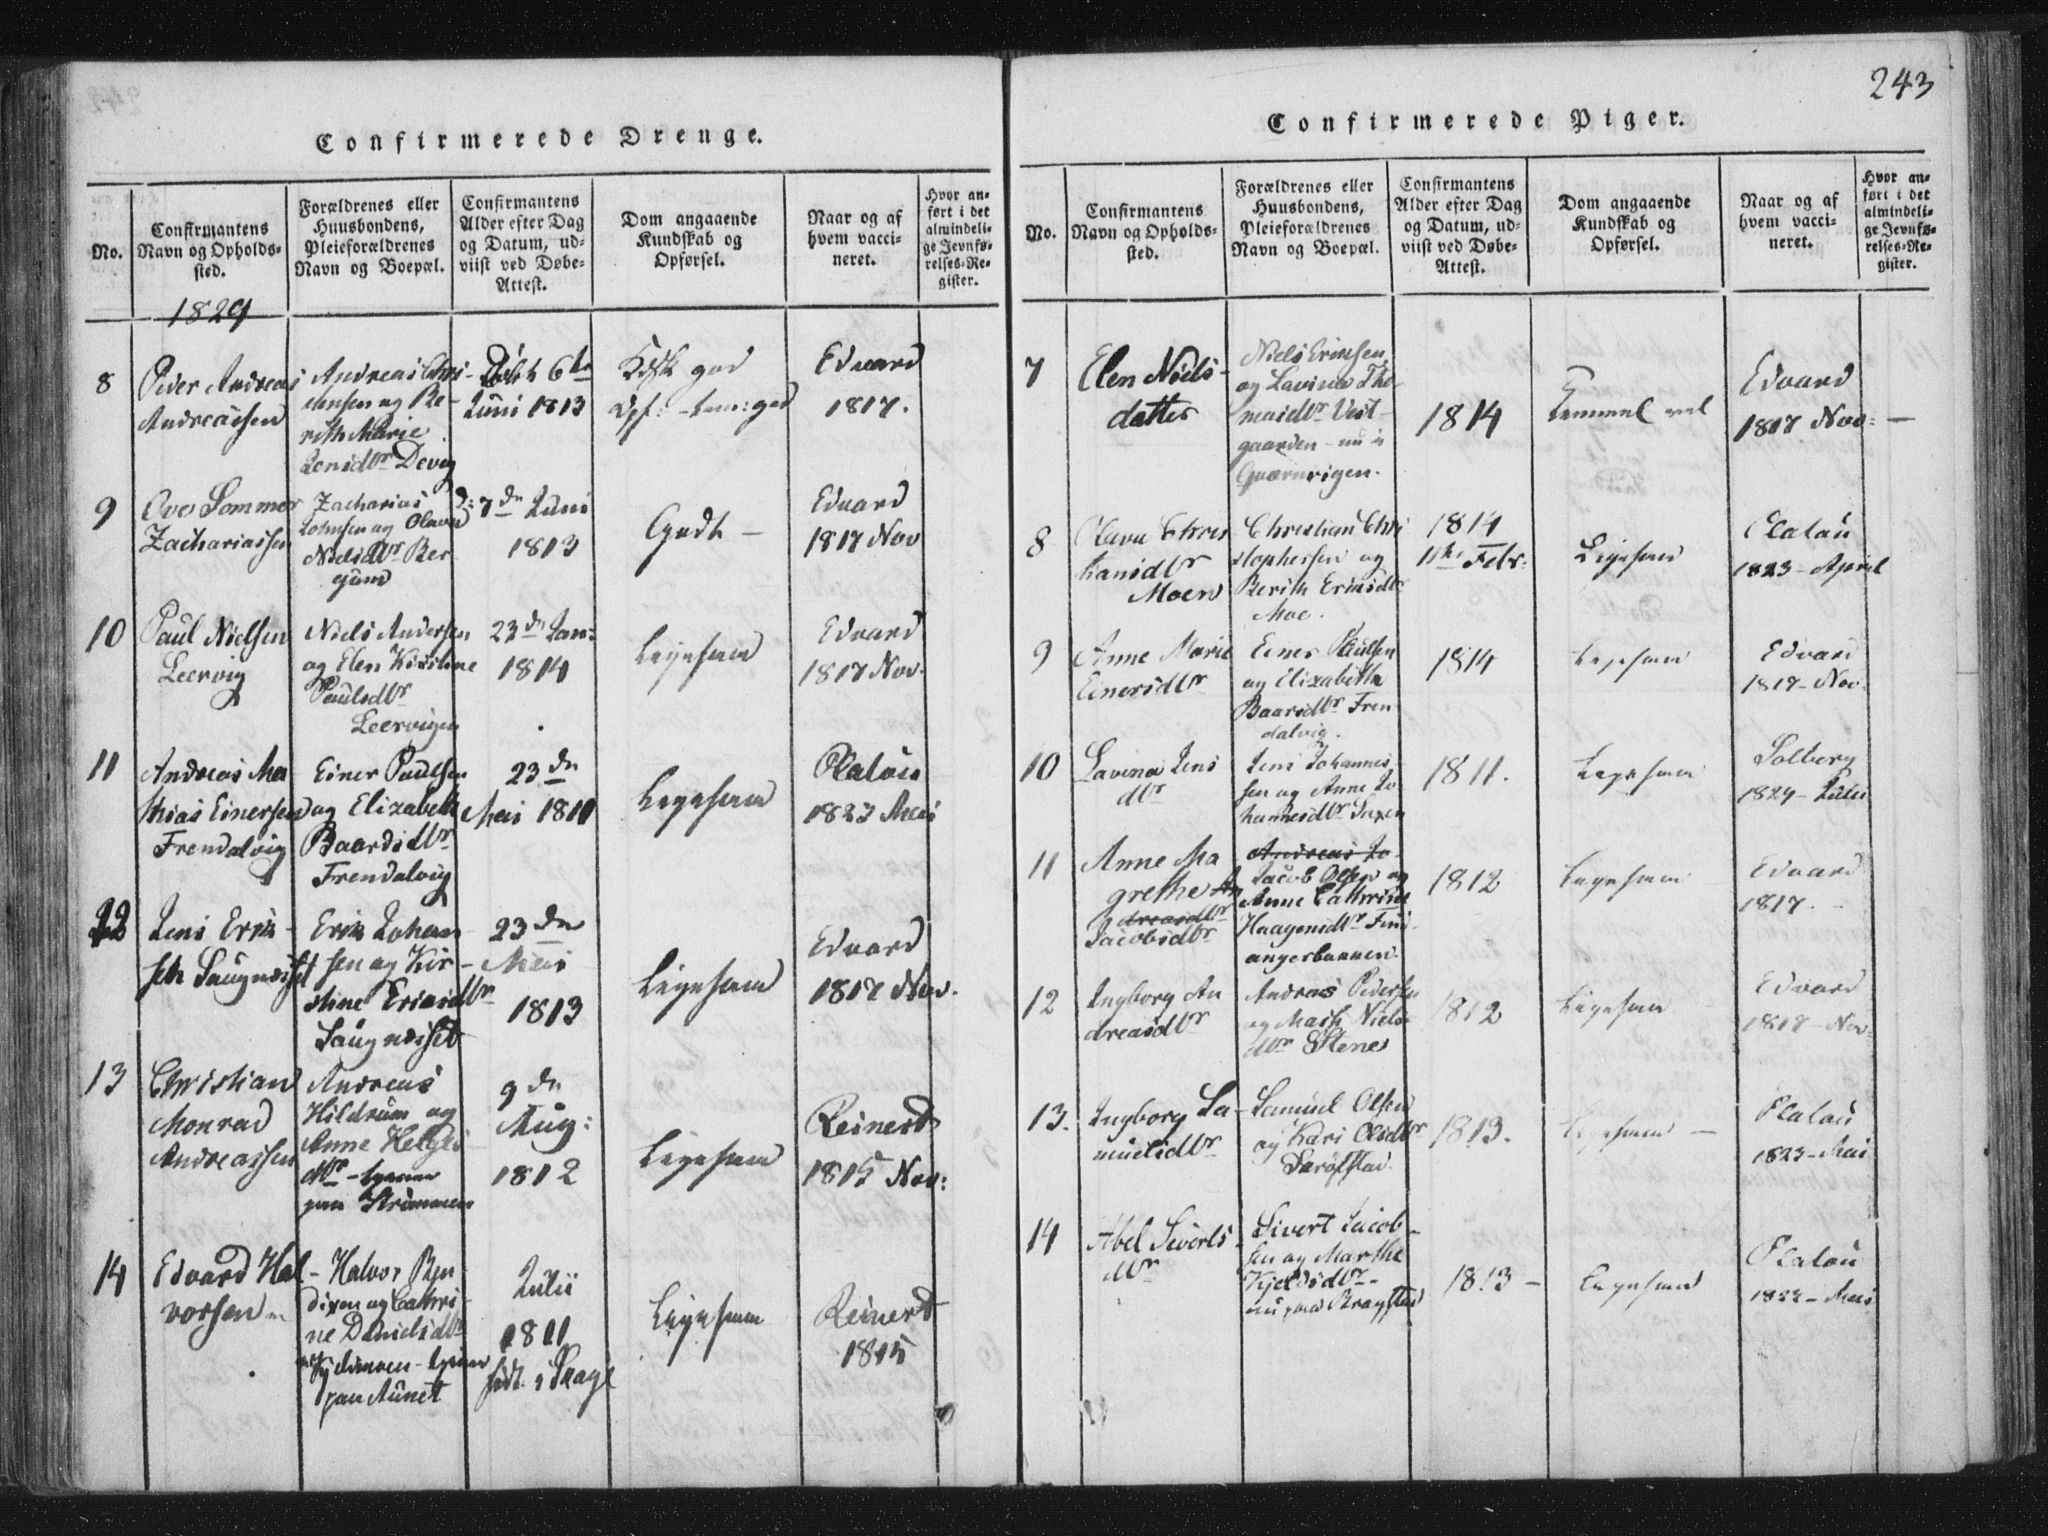 243
Confirmerede Drenge.
No.
Confirmantens
Navn og Opholds-
sted.
Forældrenes eller
Huusbondens,
Pleieforældrenes
Navn og Boepæl.
Confirmantens
Alder efter Dag
og Datum, ud-
viist ved Døbe-
Attest.
Dom angaaende
Kundskab og
Opførsel.
Naar og af
hvem vacci-
neret.
Hvor an-
ført i det
almindeli-
ge Jevnfø-
relses-Re-
gister.
1829
8
Peder Andreas
Andreassen
Andreas Chri-
stensen og Be-
rith Marie
Jensdtr Devig
Døbt 6te
Juni 1813
Kdsk god
Opf:
Edvard
1817.
9
Ove Sommer
Zachariassen
Zacharias
Johnsen og Olava
Nielsdtr Ber-
gum
D: 7de Juni
1813
Godt —
Edvard
1817 Nov
10
Paul Nielsen
Leervig
Niels Andersen
og Elen Kirstine
Paulsdtr
Leervigen
23de Jan:
1814
Ligesaa
Edvard
1817 Nov.
11
Andreas Ma
thias Einersen
Frendalvig
Einer Paulsen
og Elizabeth
Baardsdtr
Frendalvig
23de
Mai 1811
Ligesaa
Platou
1823 Mai
12
Jens Erik-
sen Saugnesset
Erik Johan
sen og Kir-
stine Ericsdtr
Saugnesset
23de
Mai
1813
Ligesaa
Edvard
1817 Nov.
13
Christian
Monrad
Andreassen
Andreas
Hildrum og
Anne Helges
dtr
paa Strømmen
9de
Aug:
1812
Ligesaa
Reinert
1815 Nov:
14
Edvard Hal-
vorsen
Halvor Ben
dixen og Cathri-
ne Danielsdtr
paa Aunet
Julii
1811
født i
Ligesaa
Reinert
1815
Confirmerede Piger.
No.
Confirmantens
Navn og Opholds-
sted.
Forældrenes eller
Huusbondens,
Pleieforældrenes
Navn og Boepæl.
Confirmantens
Alder efter Dag
og Datum, ud-
viist ved Døbe-
Attest.
Dom angaaende
Kundskab og
Opførsel.
Naar og af
hvem vacci-
neret.
Hvor an-
ført i det
almindeli-
ge Jevnfø-
relses-Re-
gister.
7
Elen Niels-
datter
Niels Erichsen
og Lavina Tho-
masdtr Vest-
gaarden - nu i
Qværnvigen.
1814
Temmel vel
Edvard
1817 Nov: —
8
Olava Chris
tiansdtr
Moen
Christian Chri
stophersen og
Berith Eriksdtr
Moe.
1814
11te Febr:
Ligesaa
Platou
1823 - April
9
Anne Marie
Einersdtr
Einer Paulsen
og Elizabeth
Baarsdtr Fren
dalvig.
1814
Ligesaa
Edvard
1817 - Nov.
10
Lavina Jens
dtr
Jens Johannes-
sen og Anne Jo
hannesdtr
1811.
Ligesaa
Solberg
1829 - Julii
11
Anne Ma
grethe An
dreasdtr
Jacobsdtr
Andreas Jo-
Jacob Olsen og
Anne Cathrine
Haagensdtr Find
angerbunnen.
1812
Ligesaa
Edvard
1817.
12
Ingborg An
dreasdtr
Andreas Pedersen
og Mash Niels-
dtr Stene
1812
Ligesaa
Edvard
1817 - Nov:
13.
Ingborg Sa-
muelsdtr
Samuel Olsen
og Kari Olsdtr
1813.
Ligesaa —
Platou
1823 - Mai
14
Abel Siverts-
dtr
Sivert Jacob-
sen og Marthe
Kjeldsdtr -
nu paa Bragstad
1813 -
Ligesaa
Platou
1822 - Mai